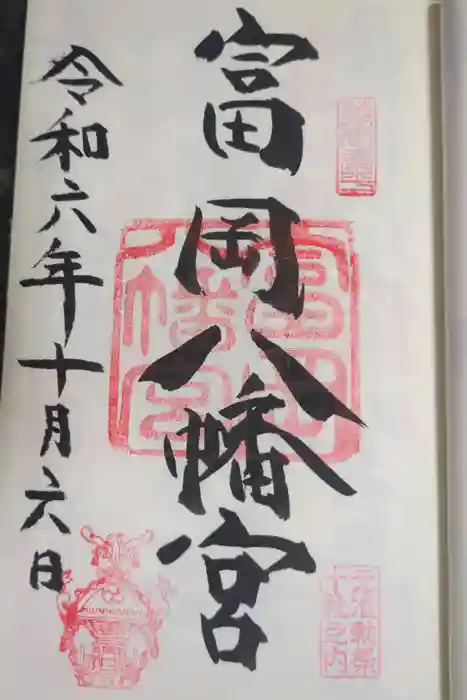 富岡八幡宮
富岡
八幡宮
元准勅祭
十社之内
令和六年十月六日